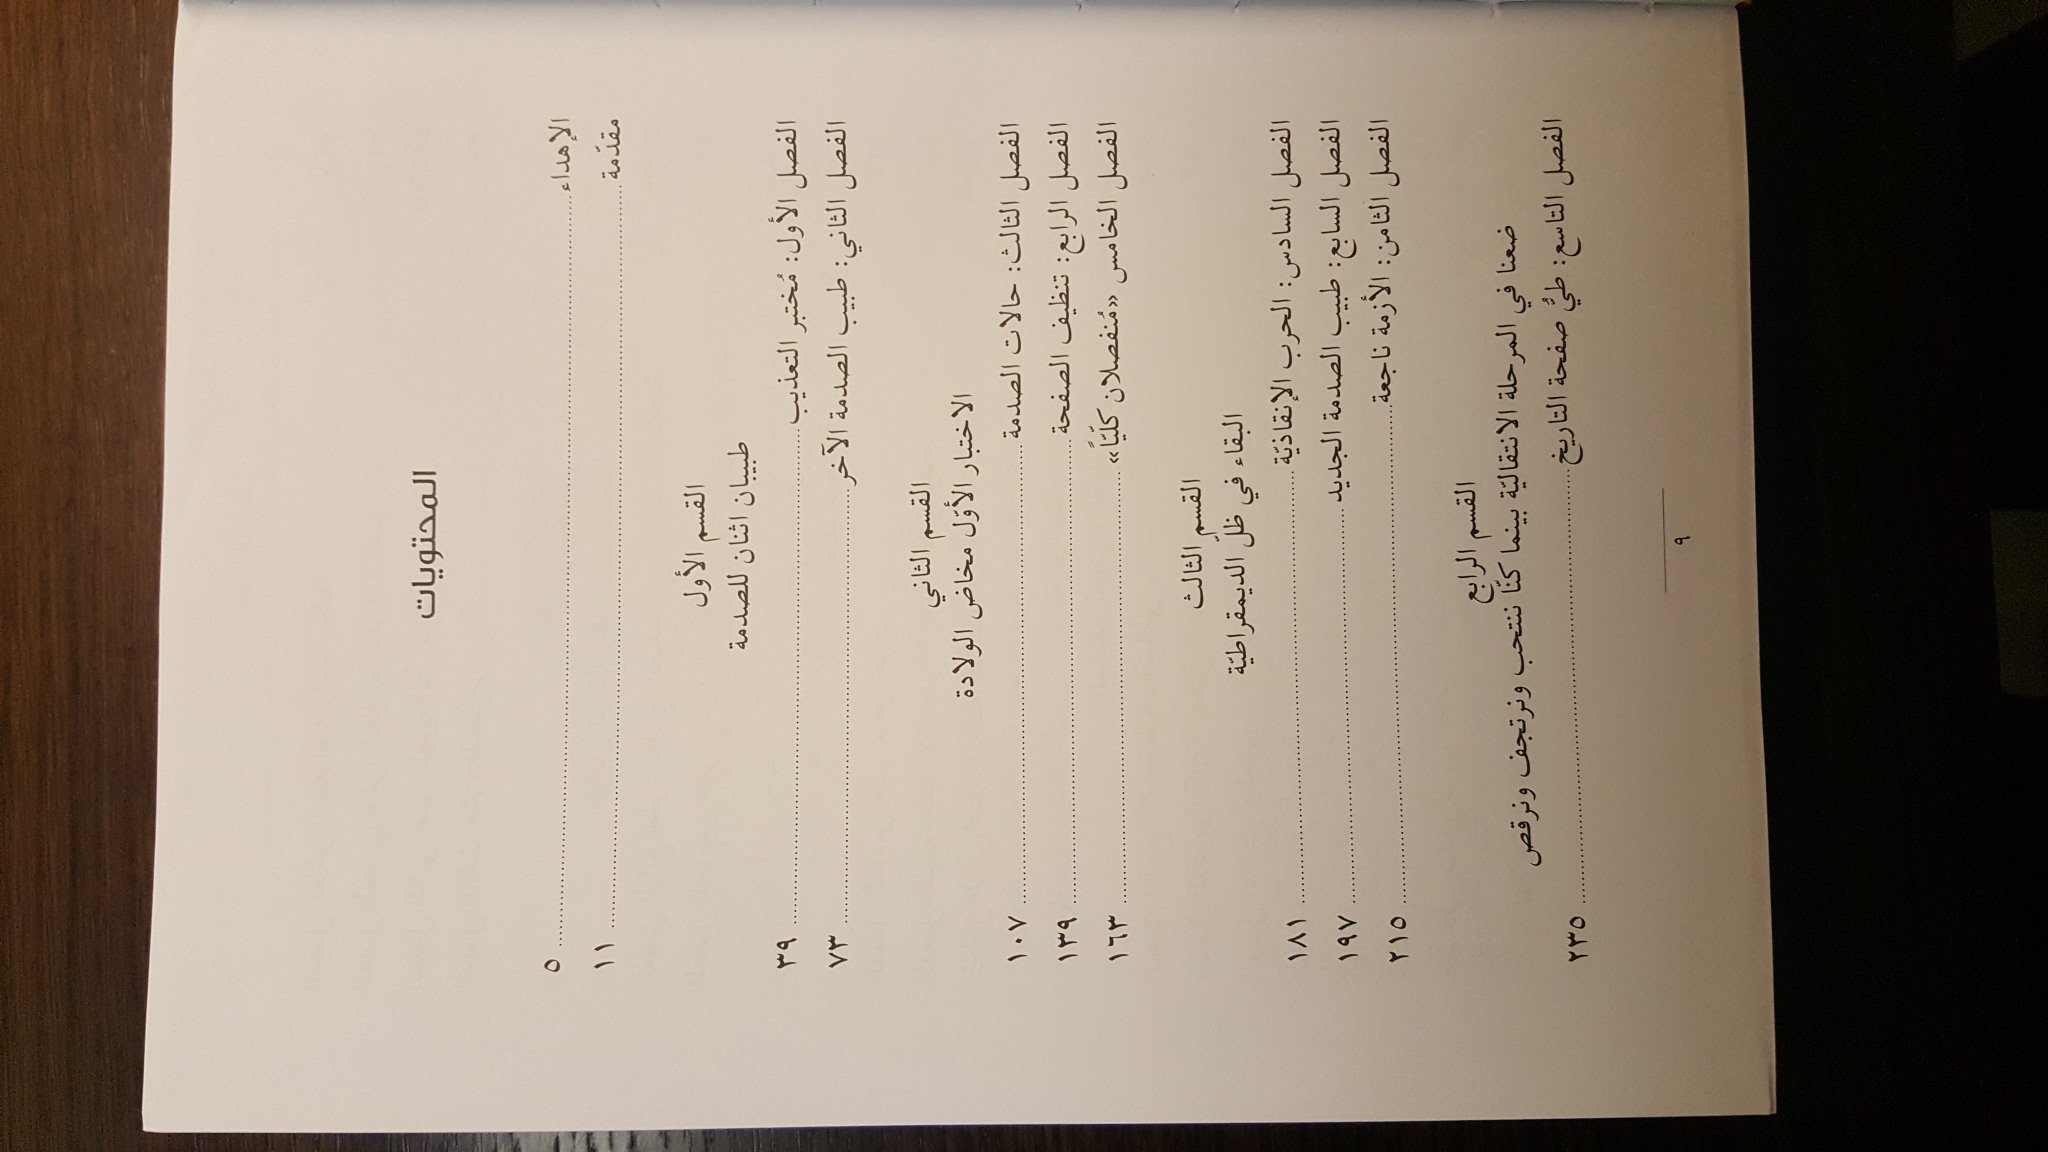 المحتويات
الإهداء ........ ٥
مقدّمة ........ ١١
القسم الأول
طبيبان اثنان للصدمة
الفصل الأول: مُختبر التعذيب ........ ٣٩
الفصل الثاني: طبيب الصدمة الآخر ........ ٧٣
القسم الثاني
الاختبار الأوّل مخاض الولادة
الفصل الثالث: حالات الصدمة ........ ١٠٧
الفصل الرابع: تنظيف الصفحة ........ ١٣٩
الفصل الخامس «مُنفصلان كلّيّاً» ........ ١٦٣
القسم الثالث
البقاء في ظلّ الديمقراطيّة
الفصل السادس: الحرب الإنقاذيّة ........ ١٨١
الفصل السابع: طبيب الصدمة الجديد ........ ١٩٧
الفصل الثامن: الأزمة ناجعة ........ ٢١٥
القسم الرابع
ضعنا في المرحلة الانتقاليّة بينما كنّا ننتحب ونرتجف ونرقص
الفصل التاسع: طيُّ صفحة التاريخ ........ ٢٣٥
٩